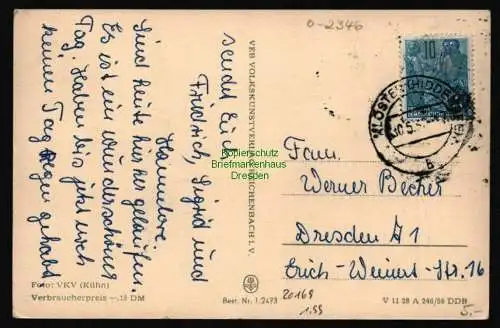 0-2346
Sind heute hier her gelaufen.
Es ist ein wunderschöner
Tag. Haben bis jetzt noch
keinen Tag Regen gehabt
sendet Euch
Friedrich, Sigrid und
Hannelore.
Foto: VKV (Kühn)
Verbraucherpreis —.15 DM
VEB VOLKSKUNSTVERLAG REICHENBACH I. V.
Best. Nr. 1.2473
20169
1.99
Kopierschutz
Briefmarkenhaus
Dresden
10
KLOSTER (HIDDENSEE)
b
Fam.
Werner Becher
Dresden A1
Erich-Weinert-Str. 16
V 11 28 A 246/56 DDR
5.-